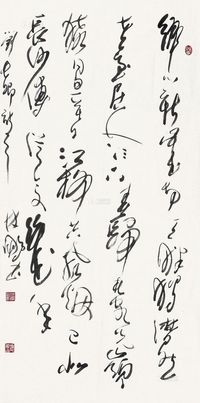 鄉心新歲切天畔獨潸然
老至居人下春歸在客先嶺
猿同旦暮江柳共風煙已似
長沙傅從今又幾年
劉長卿詩
林鵬